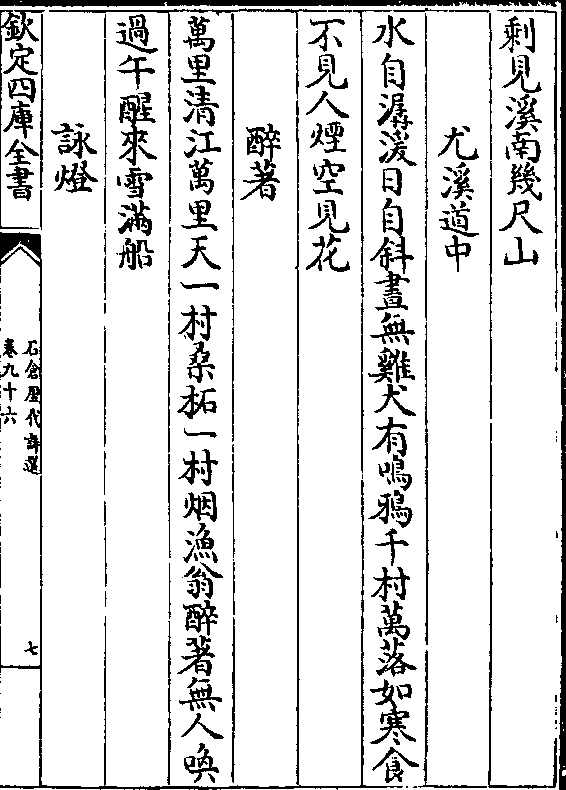 剰見溪南幾尺山
尤溪道中
水自潺湲日自斜晝無雞犬有鳴鴉千村萬落如寒食
不見人煙空見花
醉著
萬里清江萬里天一村桑柘一村烟漁翁醉著無人喚
過午醒來雪滿船
詠燈
欽定四庫全書
石倉歴代詩選
卷九十六
七